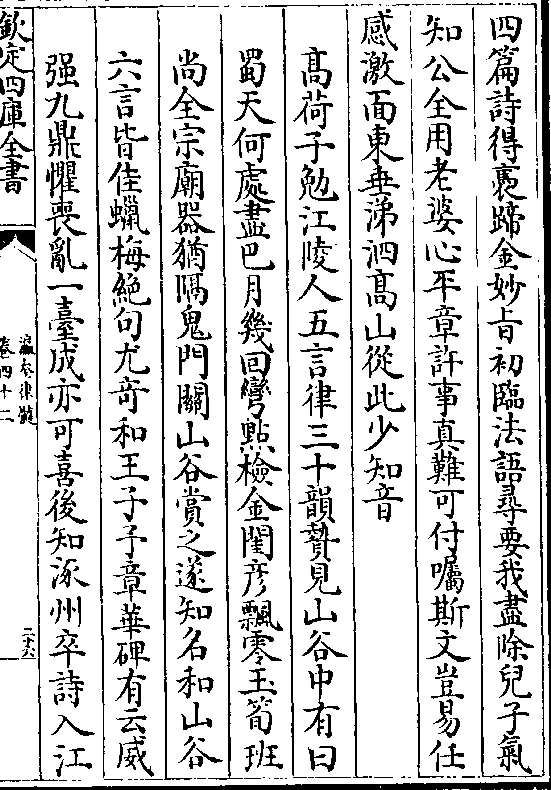 四篇詩得褭蹄金妙㫖初臨法語尋要我盡除兒子氣
知公全用老婆心平章許事真難可付囑斯文豈易任
感激面東垂涕泗髙山從此少知音
髙荷子勉江陵人五言律三十韻贄見山谷中有曰
蜀天何處盡巴月幾回彎㸃檢金閨彦飄零玉筍班
尚全宗廟器猶隔鬼門闗山谷賞之遂知名和山谷
六言皆佳蠟梅絶句尤竒和王子予章華碑有云威
强九鼎懼喪亂一臺成亦可喜後知涿州卒詩入江
欽定四庫全書
瀛奎律髓
卷四十二
二十六